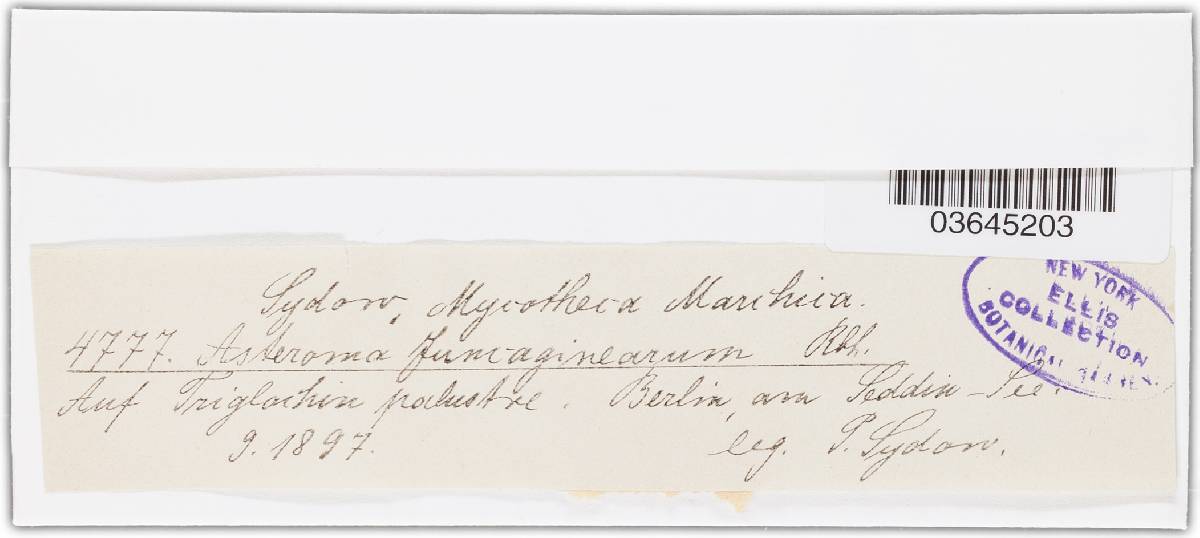 03645203
NEW YORK
ELLIS
COLLECTION
BOTANICAL
Sydow, Mycotheca Marchica.
4777. Asteroma juncaginearum Rbh.
Auf Triglochin palustre. Berlin, am Seddin-See.
9. 1897. leg. P. Sydow.